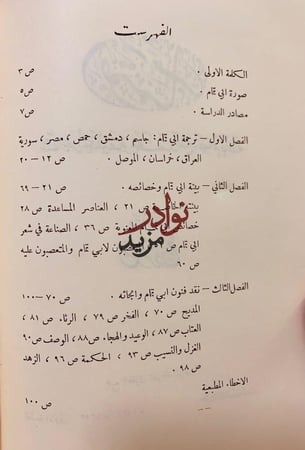 الفهرست
الكلمة الاولى . ص ٣
صورة ابي تمام ص ٥
مصادر الدراسة . ص ٧
الفصل الاول – ترجمة ابي تمام : جاسم ، دمشق ، حمص ، مصر ، سورية
العراق ، خراسان ، الموصل . ص ١٢ – ٢٠
الفصل الثاني – بيئة ابي تمام وخصائصه . ص ٢١ – ٦٩
بيئة ص ٢١ ، العناصر المساعدة ص ٢٨
ص ٣٦ ، الصناعة في شعر
ابي تمام ص المتعصبون لابي تمام والمتعصبون عليه
ص ٦٠
نوادر
مزيد
الفصل الثالث – نقد فنون ابي تمام وابحاثه . ص ٧٠ – ١٠٠
المديح ص ٧٠ ، الفخر ص ٧٩ ، الرثاء ص ٨١ ،
العتاب ص ٨٧ ، الوعيد والهجاء ص ٨٨ ، الوصف ص ٩٠
الغزل والنسيب ص ٩٣ ، الحكمة ص ٩٦ ، الزهد
ص ٩٨ .
الاخطاء المطبعية
ص ١٠٠